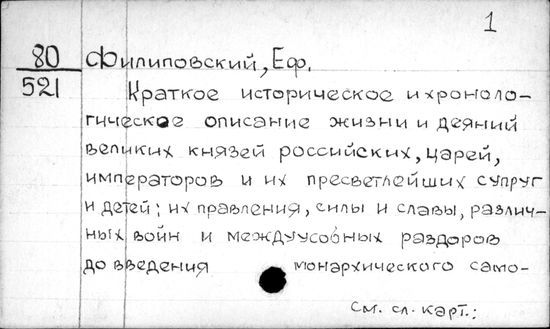 1
80 Филиповский, Еф.
521 Краткое историческое и хроноло-
гическое описание жизни и деяний
великих князей российских, царей,
императоров и их пресветлейших супруг
и детей; их правления, силы и славы, различ-
ных войн и междуусобных раздоров
до введения монархического само-
см. сл. карт.: